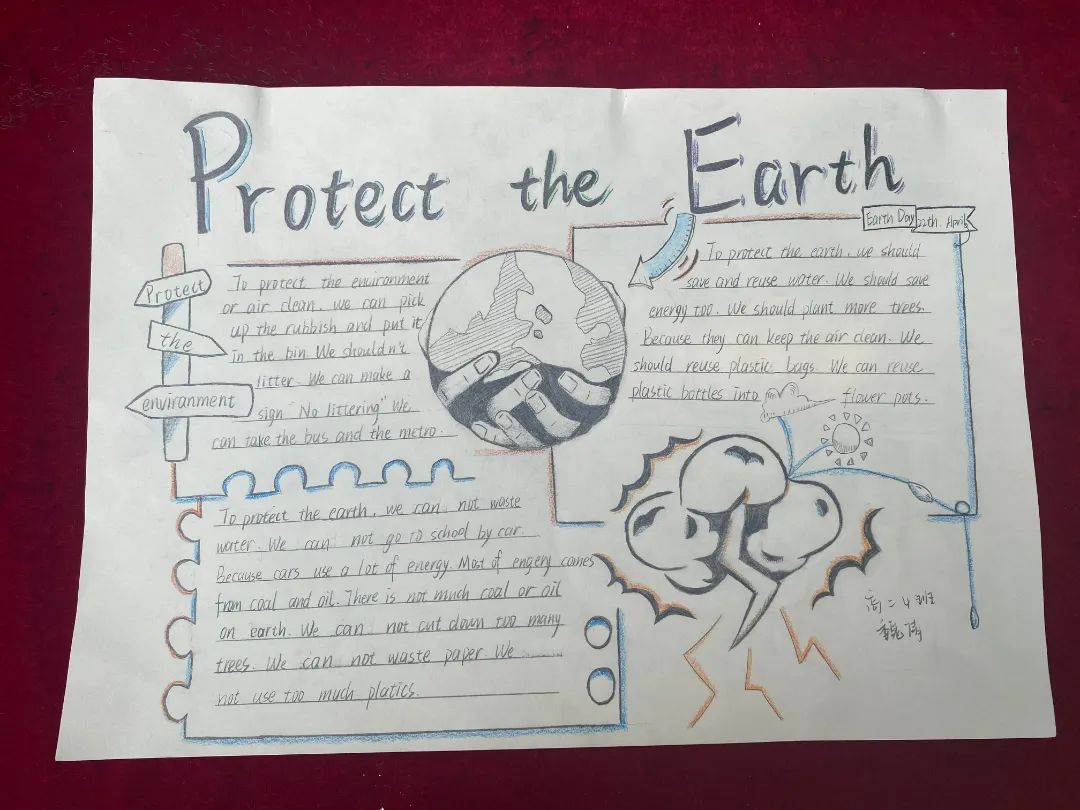 Protect the Earth
Earth Day 22th. April
Protect
the
environment
To protect the environment
or air clean, we can pick
up the rubbish and put it
in the bin. We shouldn't
litter. We can make a
sign "No littering" We
can take the bus and the metro.
To protect the earth, we should
save and reuse water. We should save
energy too. We should plant more trees.
Because they can keep the air clean. We
should reuse plastic bags. We can reuse
plastic bottles into flower pots.
To protect the earth, we can not waste
water. We can not go to school by car.
Because cars use a lot of energy. Most of engery comes
from coal and oil. There is not much coal or oil
on earth. We can not cut down too many
trees. We can not waste paper. We
not use too much platics.
高二4班